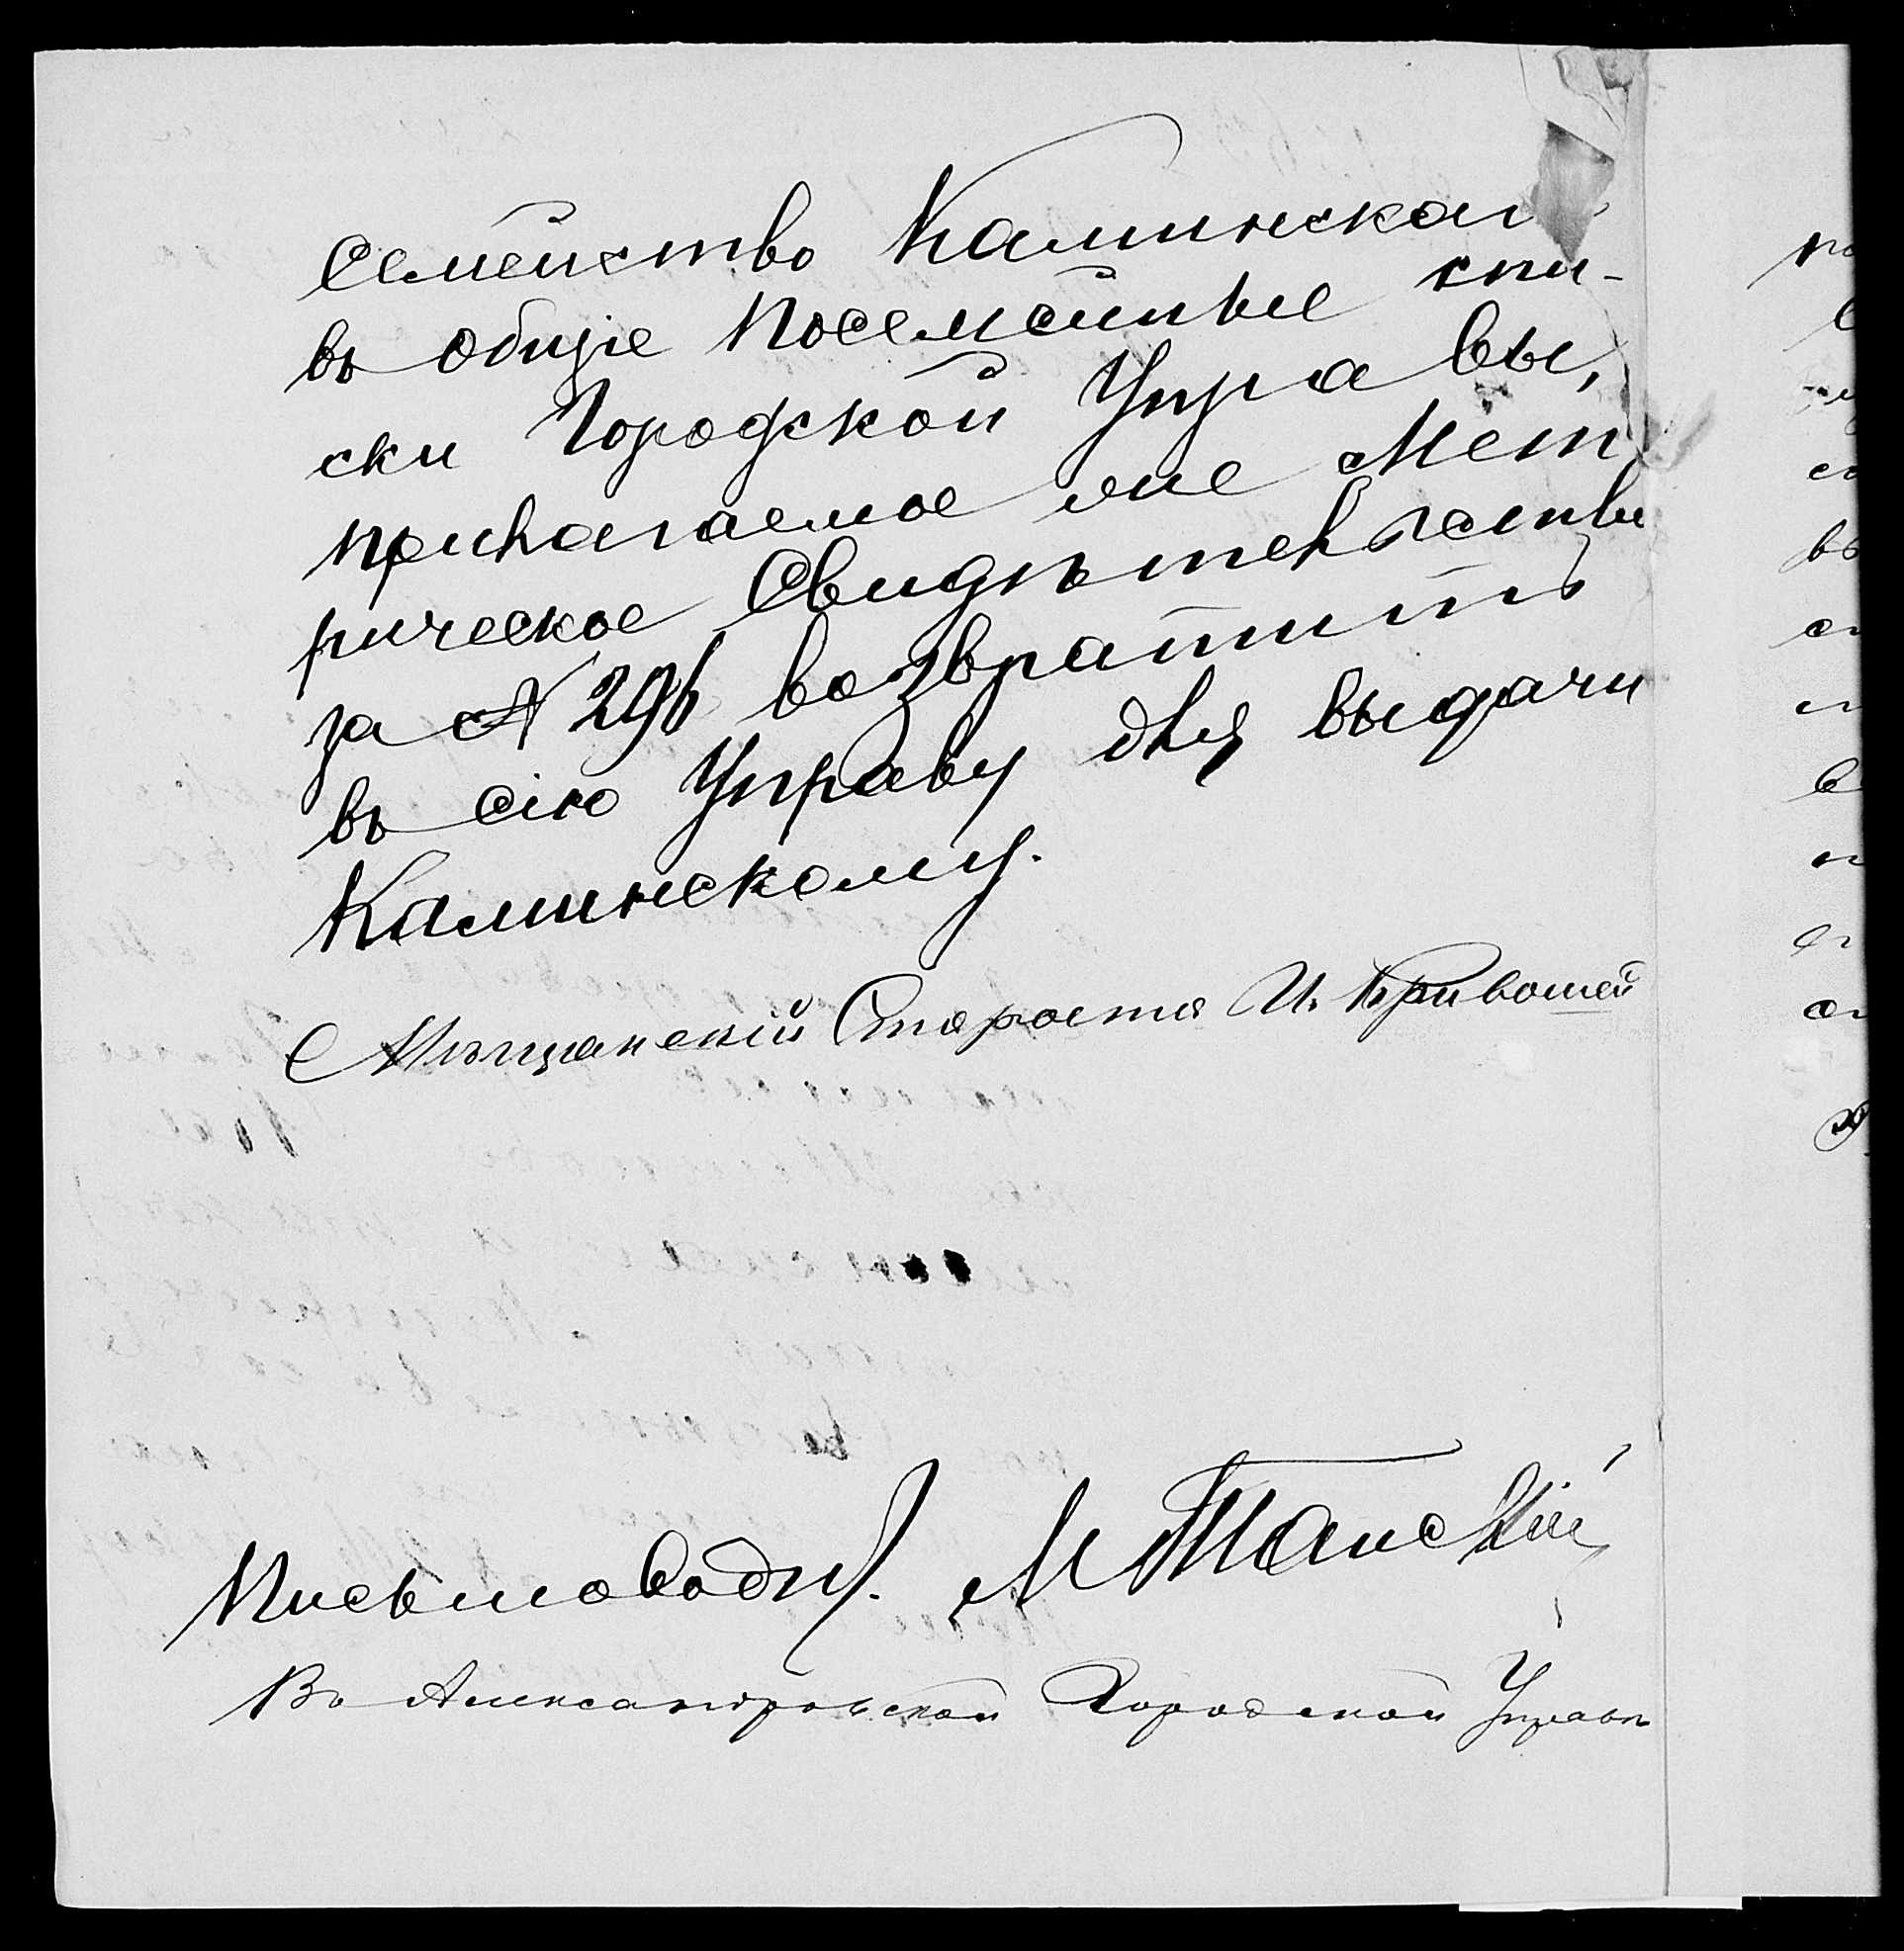 Семейство Калинскаго
въ общіе посемейные спи-
ски Городской Управы,
прилагаемое же Мет
рическое Свидѣтельство
за № 296 возвратить
въ сію Управу для выдачи
Калинскому.
Мѣщанскій Староста И. Кривошей
Письмоводит. М Танскій
Въ Александровской Городской Управѣ